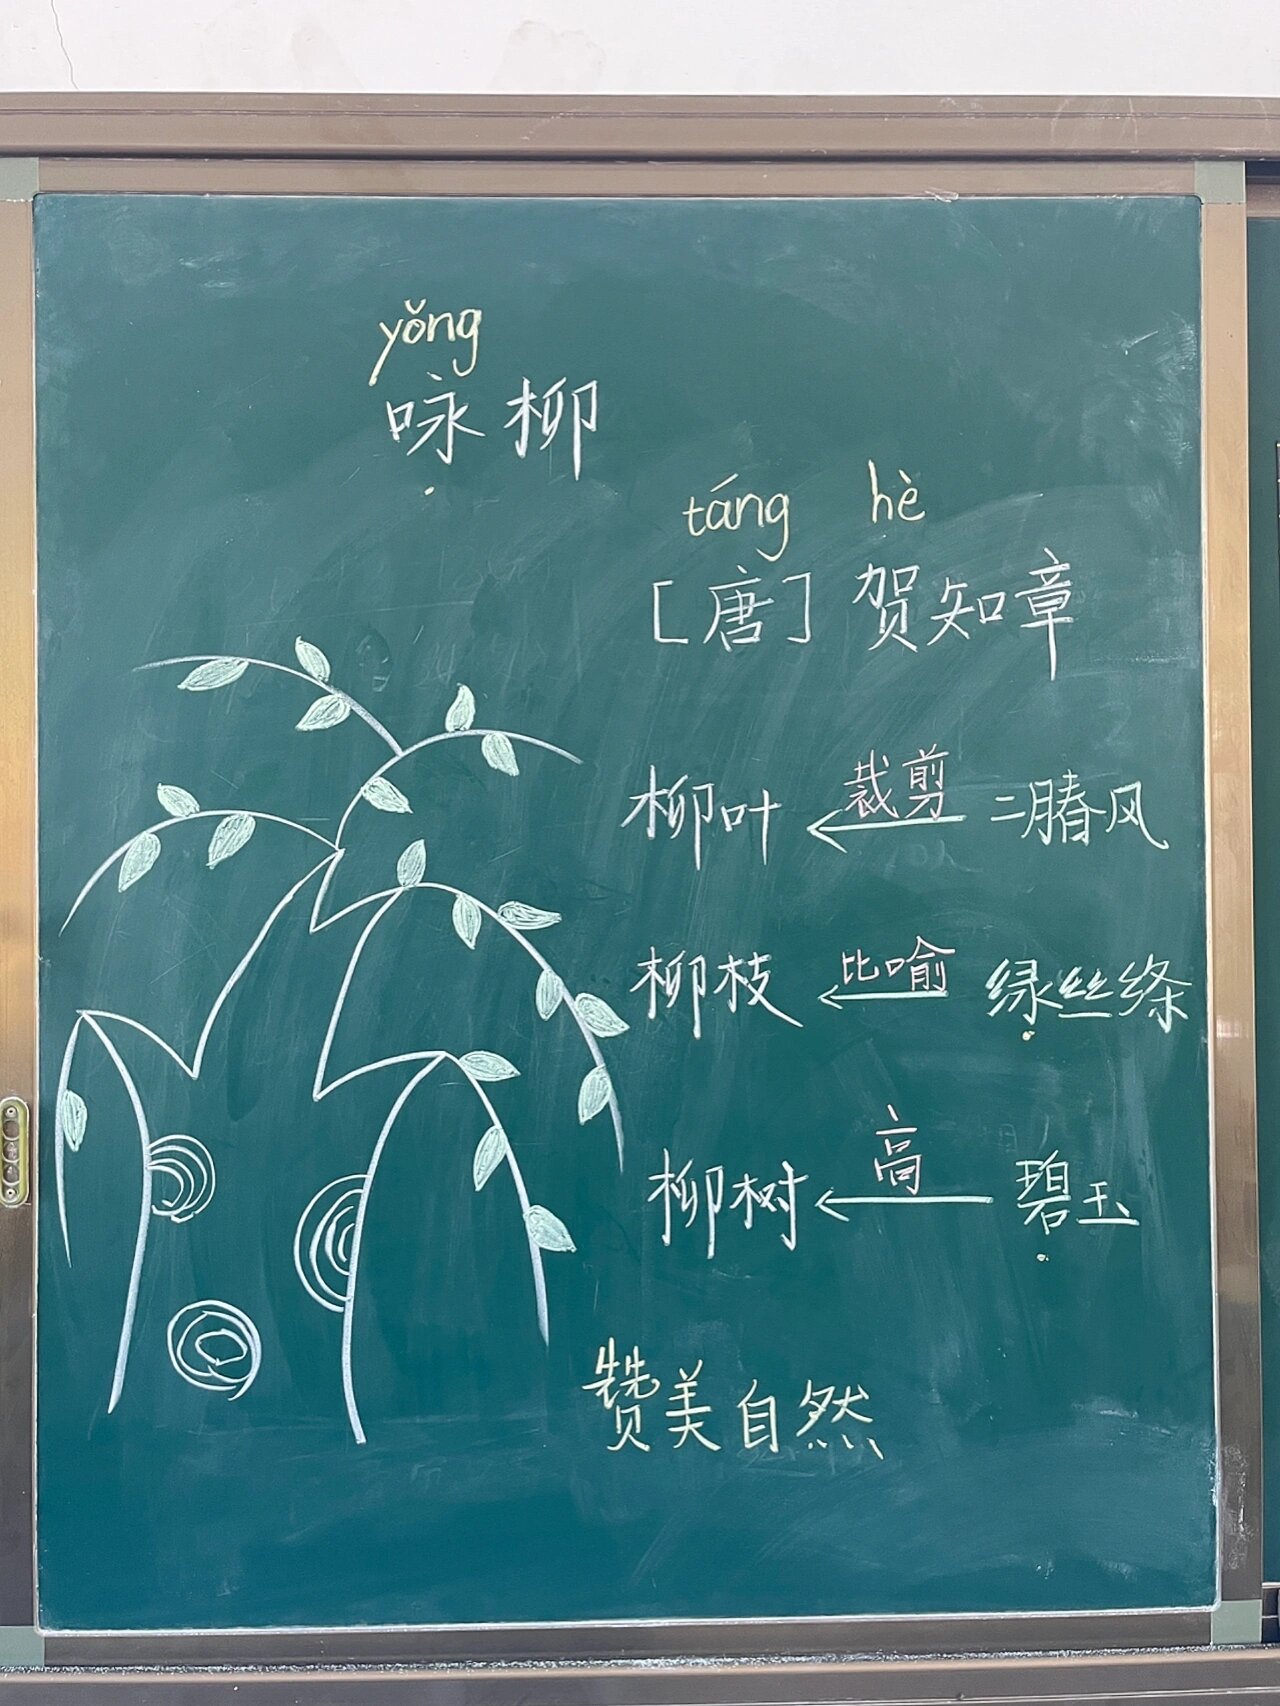 yǒng
咏柳
táng hè
[唐]贺知章
柳叶 ← 裁剪 二月春风
柳枝 ← 比喻 绿丝绦
柳树 ← 高 碧玉
赞美自然